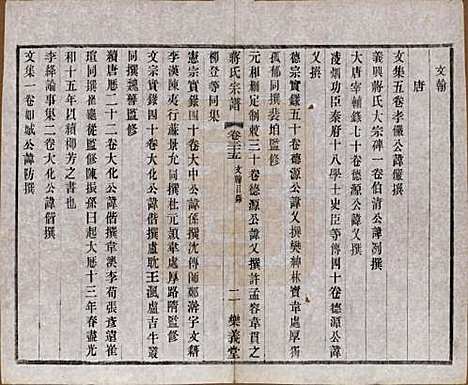 文翰
唐
文集五卷李儼公諱儼撰
義興蔣氏大宗碑一卷伯清公諱冽撰
大唐宰輔錄七十卷德源公諱乂撰
凌烟功臣秦府十八學士史臣等傳四十卷德源公諱
乂撰
德宗實錄五十卷德源公諱乂撰樊紳林寶韋處厚獨
孤郁同撰裴垍監修
元和刪定制敕三十卷德源公諱乂撰許孟容韋貫之
蔣氏宗譜 卷之三十五 文翰目錄 二 樂義堂
柳登等同集
憲宗實錄四十卷大中公諱係撰沈傳師鄭澣宇文籍
李漢陳夷行蘇景允同撰杜元穎韋處厚路隋監修
文宗實錄四十卷大化公諱偕撰盧耽王渢盧吉牛叢
同撰魏謩監修
續唐曆二十二卷大化公諱偕撰韋澳李荀張彥遠崔
瑄同撰崔龜從監修陳振孫曰起大曆十三年春盡元
和十五年以續柳芳之書也
李絳論事集二卷大化公諱偕撰
文集一卷如城公諱防撰